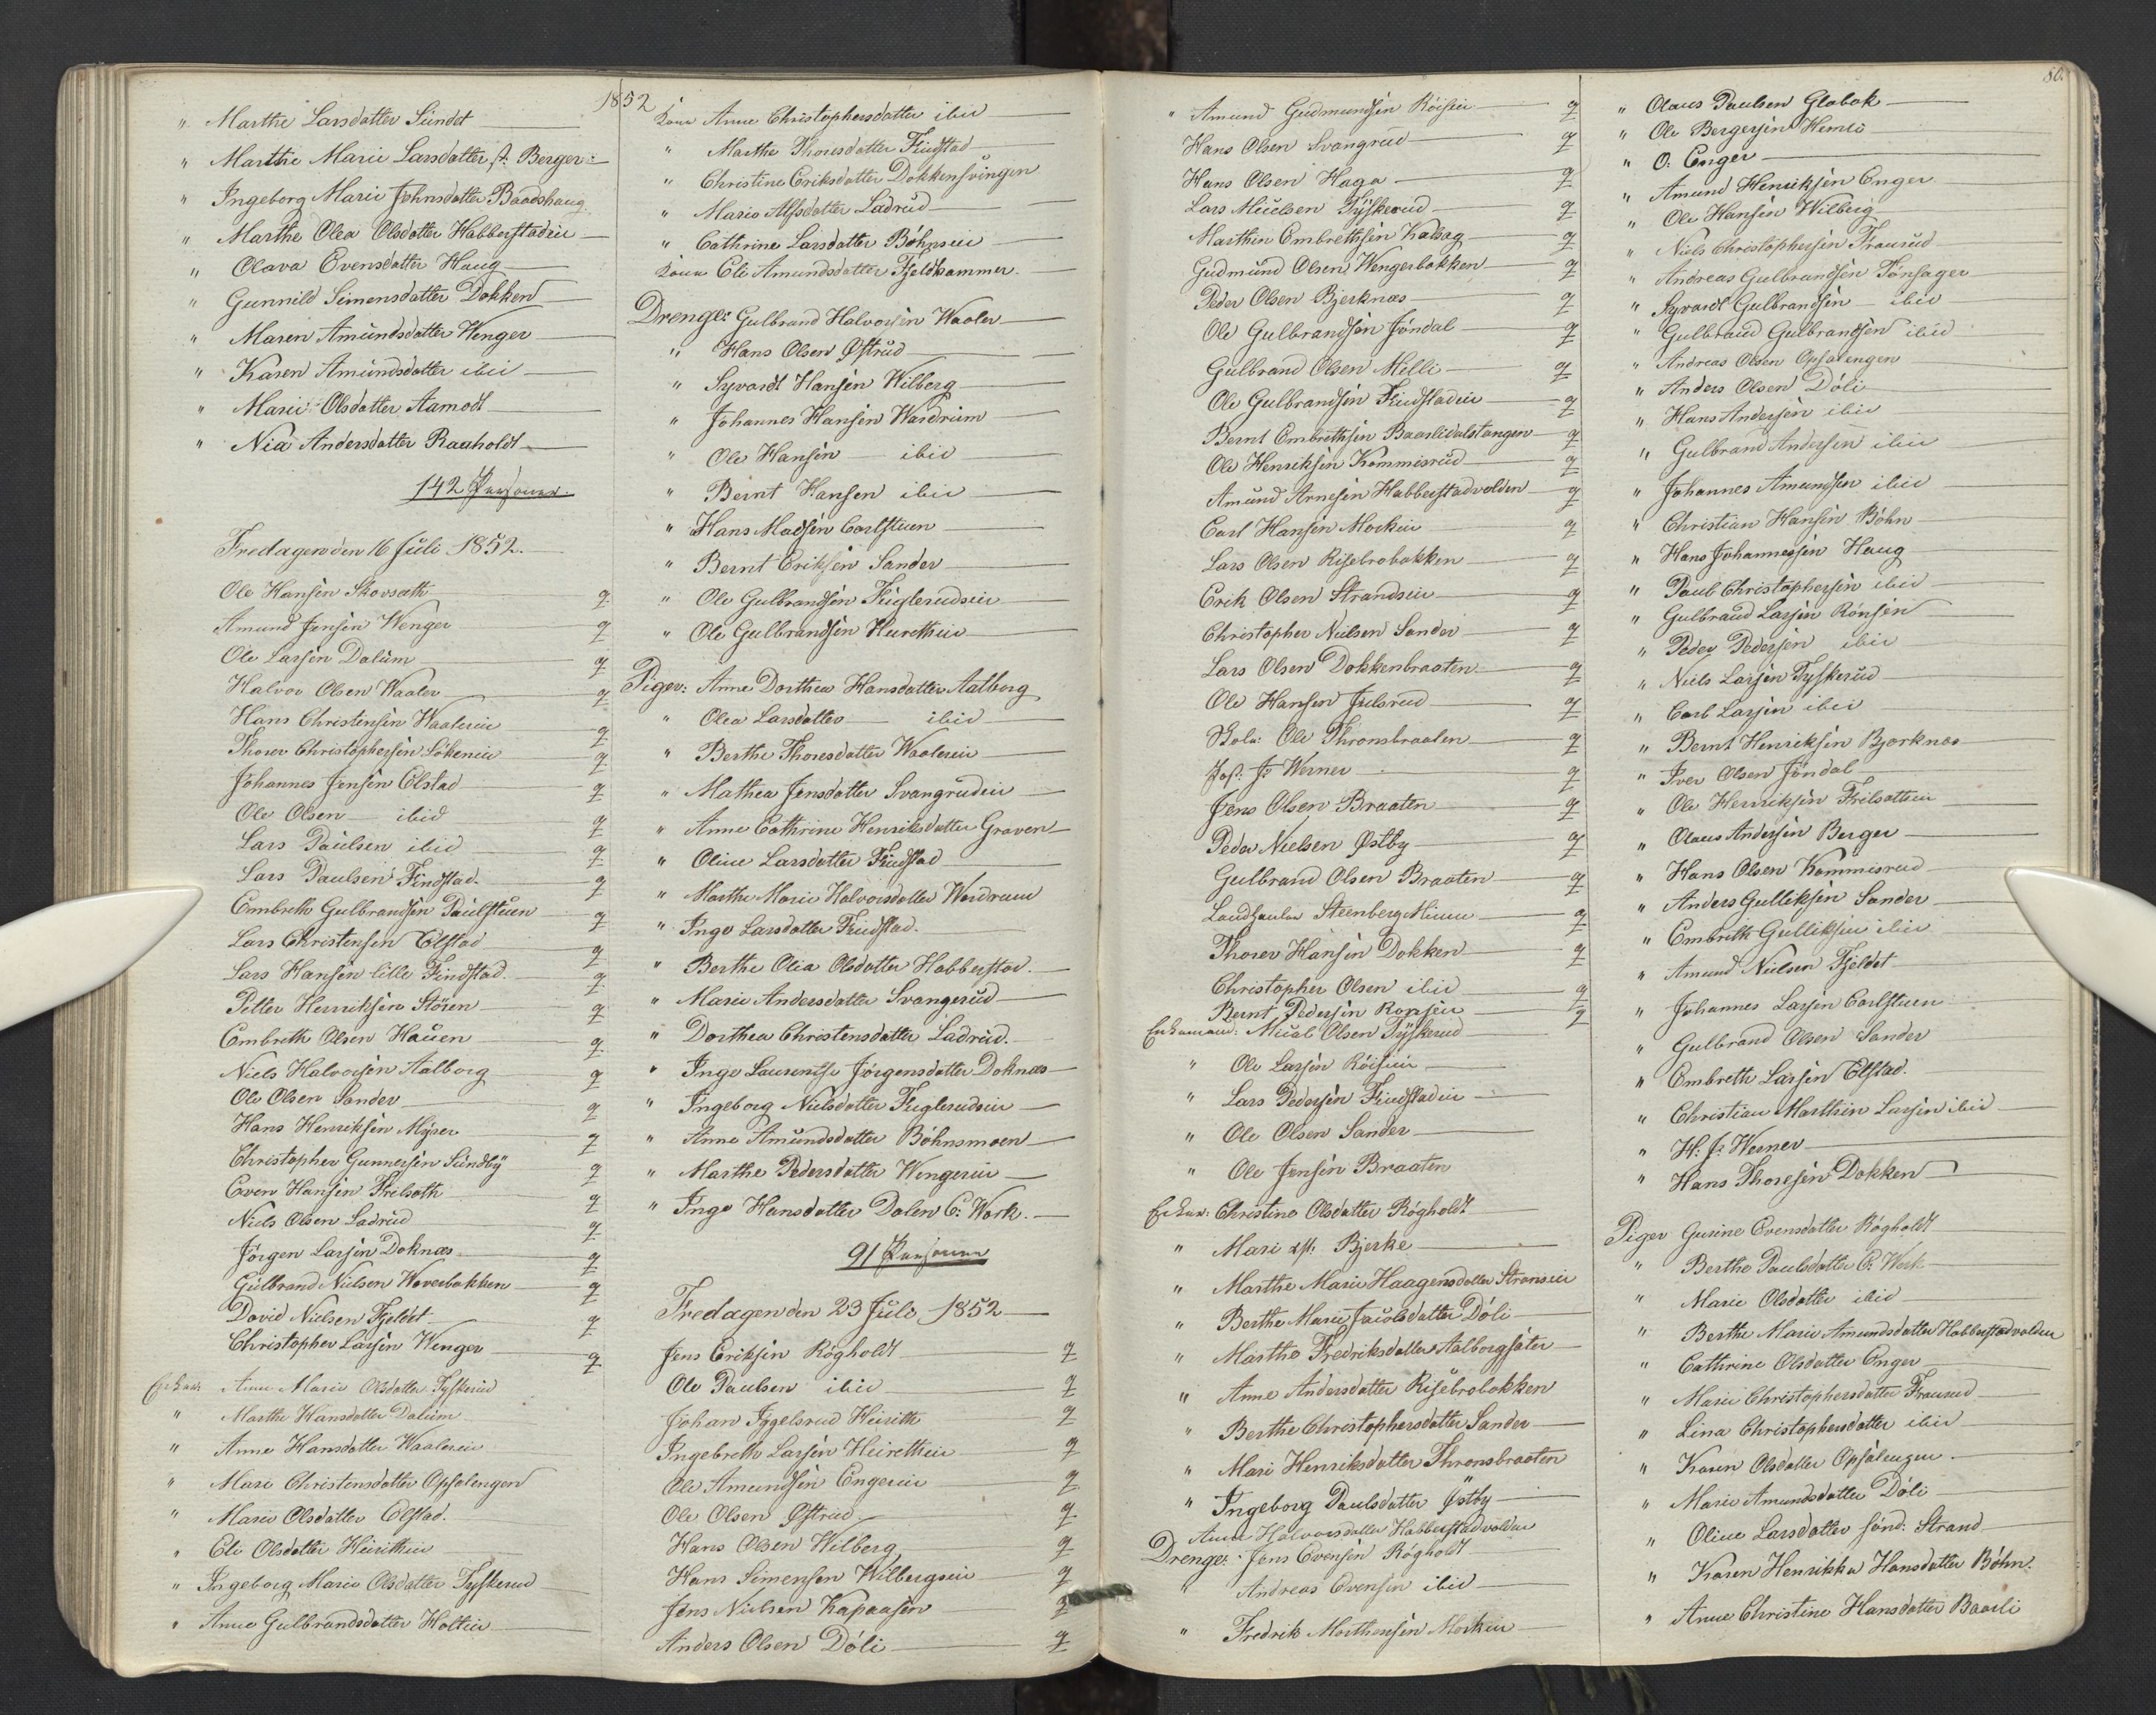 1852
" Marthe Larsdatter Sundet
" Marthe Marie Larsdatter Berger
" Ingeborg Marie Johnsdatter Baadshaug
" Marthe Olea Olsdatter Habberstadeie
" Olava Evensdatter Haug
" Gunnild Simensdatter Dokken
" Maren Amundsdatter Wenger
" Karen Amundsdatter ibid
" Marie Olsdatter Aamodt
" Nia Andersdatter Raaholdt
142 Personer.
Fredagen den 16 Juli 1852.
Ole Hansen Skovsæth q
Amund Jensen Wenger q
Ole Larsen Dalum q
Halvor Olsen Waaler q
Hans Christensen Waalereie q
Thorer Christophersen q
Johannes Jensen Elstad q
Ole Olsen ibid q
Lars Paulsen ibid q
Lars Paulsen Findstad q
Embreth Gulbrandsen Paulstuen q
Lars Christensen Elstad q
Lars Hansen lille Findstad q
Petter Henriksen Stören q
Embreth Olsen Hauen q
Niels Halvorsen Aalborg q
Ole Olsen Sander q
Hans Henriksen Myrer q
Christopher Gunnersen Sundby q
Even Hansen q
Niels Olsen Ladrud q
Jörgen Larsen Doknæs q
Gulbrand Nielsen Waverbakken q
David Nielsen Fjeldet q
Christopher Larsen Wenger q
Anne Marie Olsdatter Tyskerud
" Marthe Hansdatter Dalum
" Anne Hansdatter Waalereie
" Mari Christensdatter Opsalengen
" Marie Olsdatter Elstad.
" Eli Olsdatter
" Ingeborg Marie Olsdatter Tyskerud
" Anne Gulbrandsdatter Holteie
Kone Anne Christophersdatter ibid
" Marthe Thoresdatter Findstad
" Christine Eriksdatter Dokkensvingen
" Marie Alfsdatter Ladrud
" Cathrine Larsdatter Böhnseie
Kone Eli Amundsdatter Fjeldhammer
Drenge: Gulbrand Halvorsen Waaler
" Hans Olsen Østrud
" Syvardt Hansen Wilberg
" Johannes Hansen Wardrum
" Ole Hansen ibid
" Bernt Hansen ibid
" Hans Madsen Carlstuen
" Bernt Eriksen Sander
" Ole Gulbrandsen Fuglerudseie
" Ole Gulbrandsen
Piger: Anne Dorthea Hansdatter Aalborg
" Olea Larsdatter ibid
" Berthe Thoresdatter Waalereie
" Mathea Jensdatter Svangrudeie
" Anne Cathrine Henriksdatter Graven
" Oline Larsdatter Findstad
" Marthe Marie Halvorsdatter Wardrum
" Inge Larsdatter Findstad.
" Berthe Olia Olsdatter Habberstad.
" Marie Andersdatter Svangerud
" Dorthea Christensdatter Ladrud.
" Inge Laurentse Jörgensdatter Doknæs
" Ingeborg Nielsdatter Fuglerudseie
" Anne Amundsdatter Böhnsmoen
" Marthe Pedersdatter Wengereie
" Inge Hansdatter Dalen E: Værk.
91 Personer
Fredagen den 23 Juli 1852
Jens Eriksen Rögholdt q
Ole Paulsen ibid q
Johan Iggelsrud q
Ingebreth Larsen q
Ole Amundsen Engereie q
Ole Olsen Østrud q
Hans Olsen Wilberg q
Hans Simensen Wilbergseie q
Jens Nielsen Kapaasen q
Anders Olsen Döli q
80.
" Amund Gudmundsen Röiseie q
Hans Olsen Svangrud q
Hans Olsen Haga q
Lars Tyskerud q
Marthin Embrethsen q
Gudmund Olsen Wengerbakken q
Peder Olsen Bjerknæs q
Ole Gulbrandsen Jöndal q
Gulbrand Olsen Melli q
Ole Gulbrandsen Findstadeie q
Bernt Embrethsen Baarlidalstangen q
Ole Henriksen Kommisrud q
Amund Arnesen Habberstadvolden q
Carl Hansen q
Lars Olsen Risebrobakken q
Erik Olsen Strandseie q
Christopher Nielsen Sander q
Lars Olsen Dokkenbraaten q
Ole Hansen Julsrud q
Ole Thronsbraaten q
J: Werner q
Jens Olsen Braaten q
Peder Nielsen Østby q
Gulbrand Olsen Braaten q
Landhandler Steenberg Minne q
Thorer Hansen Dokken q
Christopher Olsen ibid q
Bernt Pedersen q
Enkemand: Olsen Tyskerud
" Ole Larsen Röiseie
" Lars Pedersen Findstadeie
" Ole Olsen Sander
" Ole Jensen Braaten
Christine Olsdatter Rögholdt
" Mari Bjerke
" Marthe Marie Haagensdatter
" Berthe Marie Jacobsdatter Döli
" Marthe Fredriksdatter Aalborgsæter
" Anne Andersdatter Risebrobakken
" Berthe Christophersdatter Sander
" Mari Henriksdatter Thronsbraaten
" Ingeborg Paulsdatter Østby
Anne Halvorsdatter Habberstadvolden
Drenge: Jens Evensen Rögholdt
" Andreas Evensen ibid
" Fredrik Marthensen
" Olaus Paulsen Globak
" Ole Bergersen Hemli
" O: Enger
" Amund Henriksen Enger
" Ole Hansen Wilberg
" Niels Christophersen
" Andreas Gulbrandsen Tönsager
" Syvardt Gulbrandsen ibid
" Gulbrand Gulbrandsen ibid
" Andreas Olsen Opsalengen
" Anders Olsen Döli
" Hans Andersen ibid
" Gulbrand Andersen ibid
" Johannes Amundsen ibid
" Christian Hansen Böhn
" Hans Johannessen Haug
" Paul Christophersen ibid
" Gulbrand Larsen Rönsen
" Peder Pedersen ibid
" Niels Larsen Tyskerud
" Carl Larsen ibid
" Bernt Henriksen Bjerknæs
" Iver Olsen Jöndal
" Ole Henriksen
" Olaus Andersen Berger
" Hans Olsen Kommisrud
" Anders Gulliksen Sander
" Embreth Gulliksen ibid
" Amund Nielsen Fjeldet
" Johannes Larsen Carlstuen
" Gulbrand Olsen Sander
" Embreth Larsen Elstad.
" Christian Marthin Larsen ibid
" H: J: Werner
" Hans Thoresen Dokken
Piger Gurine Evensdatter Rögholdt
" Berthe Paulsdatter E: Værk
" Marie Olsdatter ibid
" Berthe Marie Amundsdatter Habberstadvolden
" Cathrine Olsdatter Enger
" Marie Christophersdatter
" Lina Christophersdatter ibid
" Karen Olsdatter Opsalengen
" Marie Amundsdatter Döli
" Oline Larsdatter sönd: Strand
" Karen Henrikka Hansdatter Böhn.
" Anne Christine Hansdatter Baarli